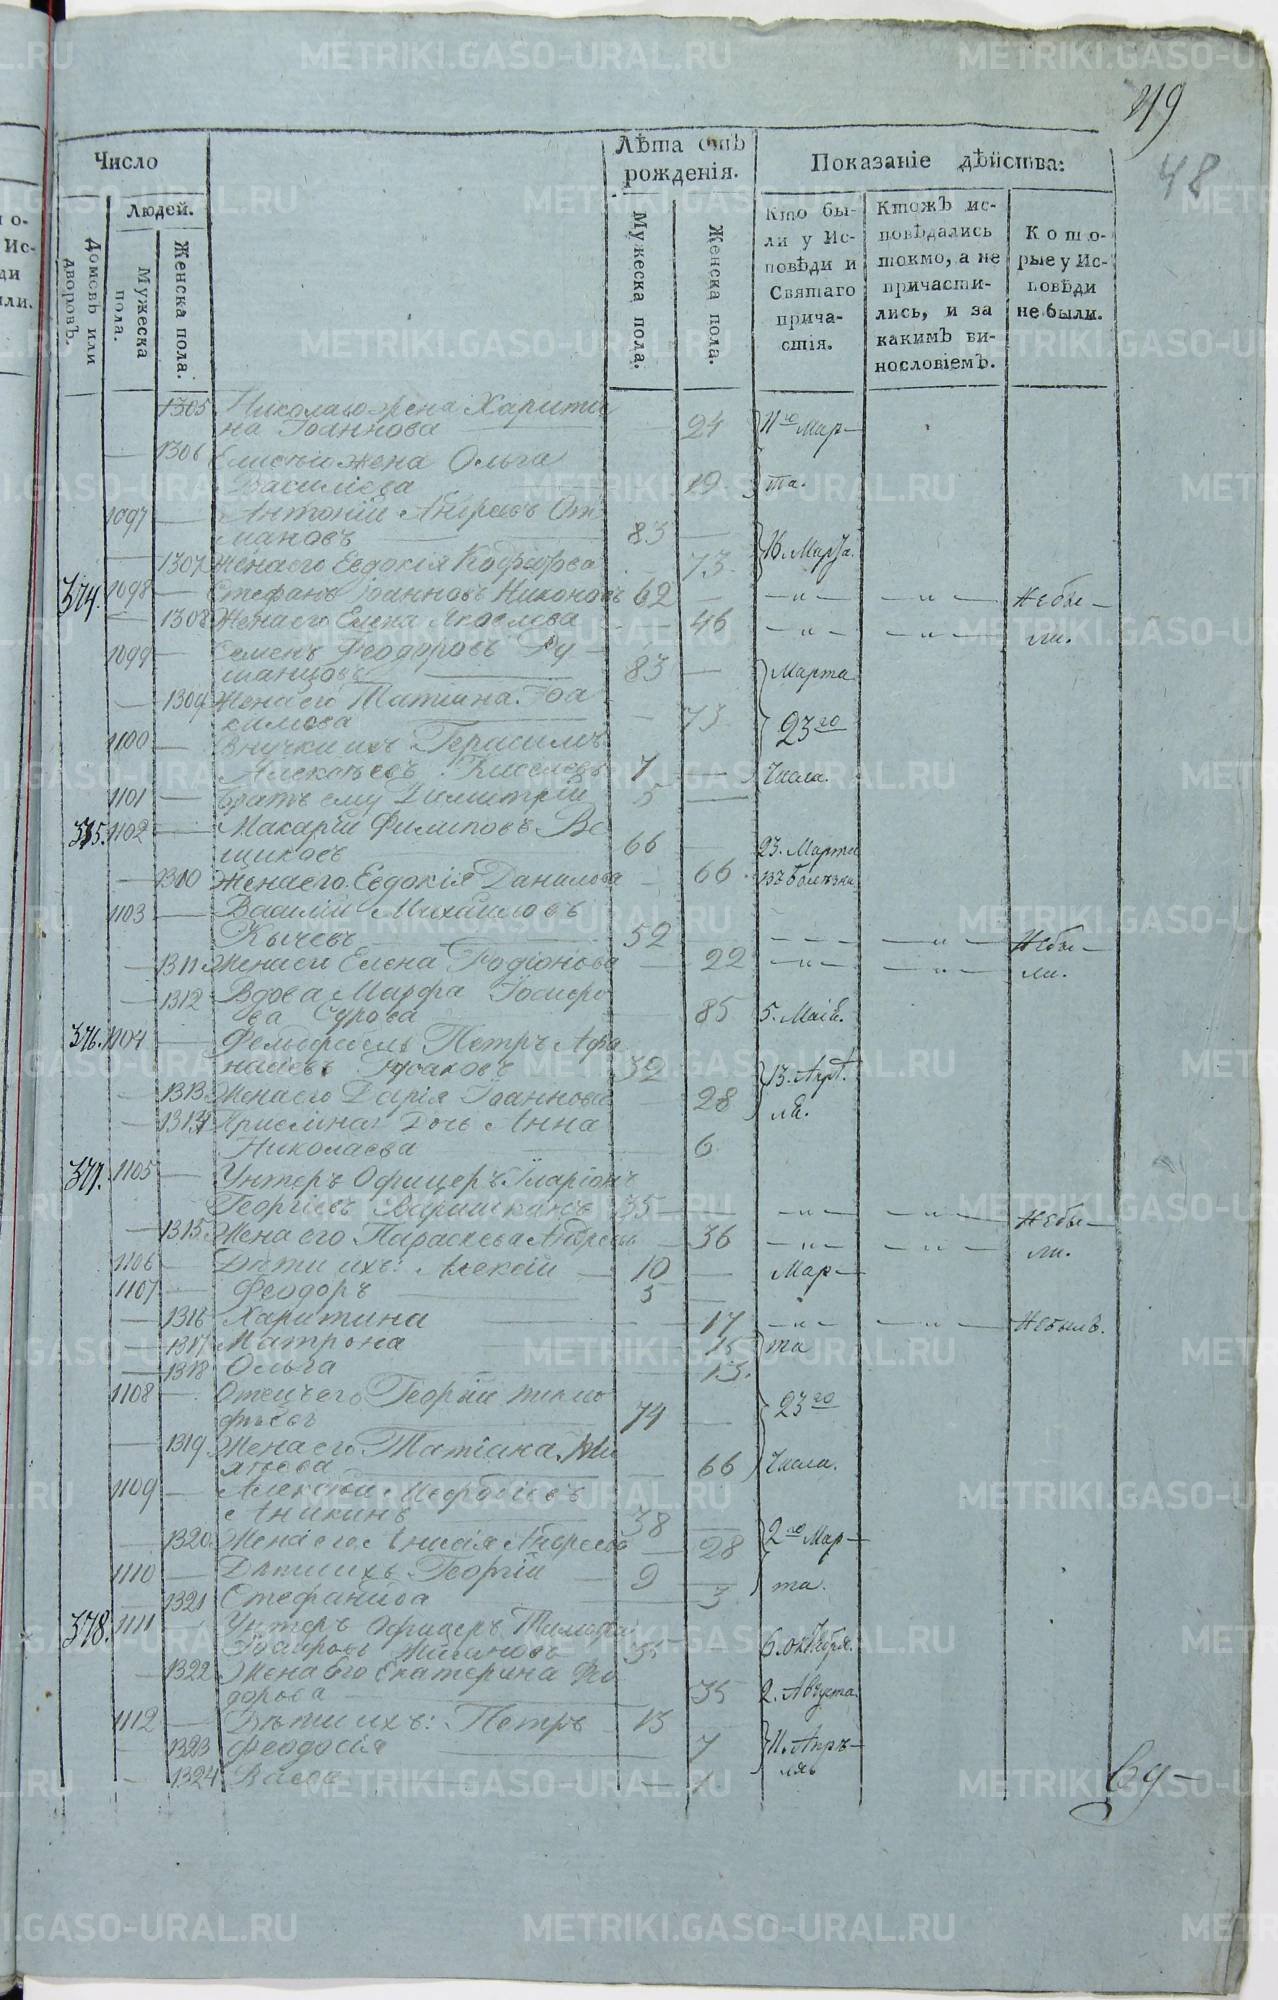 49
48
Число
Лѣта отъ рожденія.
Показаніе дѣйства:
Людей.
Домовъ или дворовъ.
Мужеска пола.
Женска пола.
Мужеска пола.
Женска пола.
Кто бы-
ли у Ис-
повѣди и
Святаго
прича-
стія.
Ктожъ ис-
повѣдались
токмо, а не
причасти-
лись, и за
какимъ ви-
нословіемъ.
Кото-
рые у Ис-
повѣди
не были.
1305 Николаю жена Харити
на Іоаннова 24 11го Мар-
1306 Елисѣю жена Ольга
Василіева 19 та.
1097 Антоній Андреевъ
мановъ 83
1307 Жена его Евдокія 73 16. Марта.
374. 1098 Стефанъ Іоанновъ Никоновъ 62 Небы-
1308 Жена его Елена Яковлева 46 ли.
1099 Семенъ Феодоровъ Ру-
манцовъ 83 Марта
1309 Жена его Татіана Іоа
кимова 73 23го
1100 Внучки ихъ Герасимъ
Алексѣевъ Киселевъ 7 Числа.
1101 Братъ ему Димитрій 5
375. 1102 Макарій Филиповъ Ве
шиковъ 66 23. Марта
1310 Жена его Евдокія Данилова 66 въ болѣзни
1103 Василій Михайловъ
Кычевъ 52 Небы-
1311 Жена его Елена Родіонова 22 ли.
1312 Вдова Марфа Іосифо
ва Сурова 85 5. Маія.
376. 1104 Фельдфебель Петръ Афа
насіевъ 32 13. Апрѣ.
1313 Жена его Дарія Іоаннова 28 ля.
1314 Дочь Анна
Николаева 6
377. 1105 Унтеръ Офицеръ Иларіонъ
Георгіевъ 35 Небы-
1315 Жена его Параскева Андреева 36 ли.
1106 Дѣти ихъ: Алексій 10 Мар-
1107 Феодоръ 5
1316 Харитина 17 Небыла.
1317 Матрона 15 та
1318 Ольга 13.
1108 Отецъ его Георгій Тимо
фѣевъ 74 23го
1319 Жена его Татіана
66 Числа.
1109 Алексѣй Мефодіевъ
Аникинъ 38
1320 Жена его Анисія Андреева 28 2го Мар-
1110 Дѣти ихъ Георгій 9
1321 Стефанида 3 та.
378. 1111 Унтеръ Офицеръ Тимофей
35 6. октября.
1322 Жена его Екатерина Фео
дорова 35 2. Августа.
1112 Дѣти ихъ: Петръ 13
1323 Феодосія 7 11. Апрѣ-
1324 Васса 1 ля
Вд-
METRIKI.GASO-URAL.RU